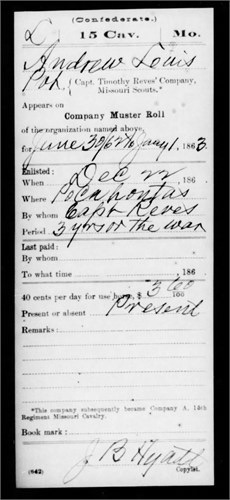 (Confederate.)
L 15 Cav. Mo.
Andrew Louis
Pvt. { Capt. Timothy Reves' Company, Missouri Scouts.*
Appears on
Company Muster Roll
of the organization named above,
for June 30, 62 to Jany 1, 1863.
Enlisted:
When Dec 22, 186
Where Pocahontas
By whom Capt Reves
Period 3 yrs or the war
Last paid:
By whom
To what time , 186
40 cents per day for use horse, $ 3 60 100
Present or absent Present
Remarks:
*This company subsequently became Company A, 15th Regiment Missouri Cavalry.
Book mark:
(642) J B Hyatt
Copyist.